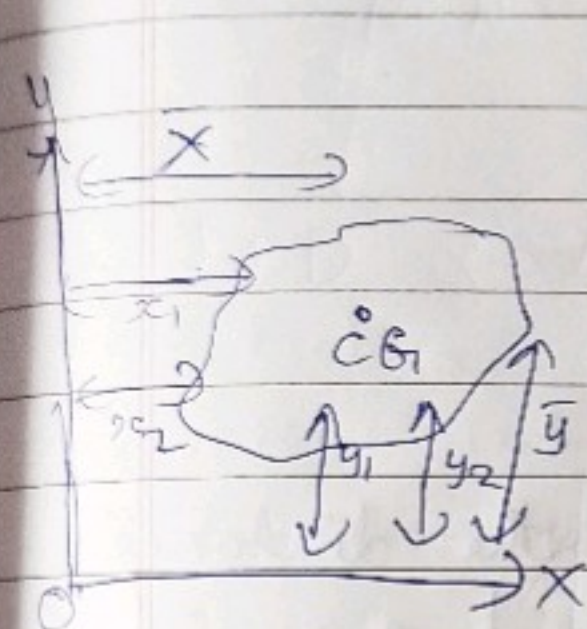 y
X̄
x₁
CG
x₂
y₁ y₂ ȳ
O X